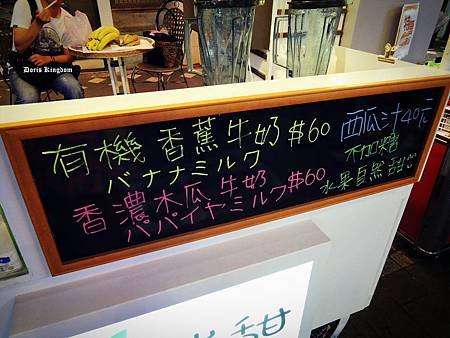 Doris Kingdom
有機香蕉牛奶 $60
バナナミルク
香濃木瓜牛奶 $60
パパイヤミルク
西瓜汁40元
不加糖
水果自然甜
甜